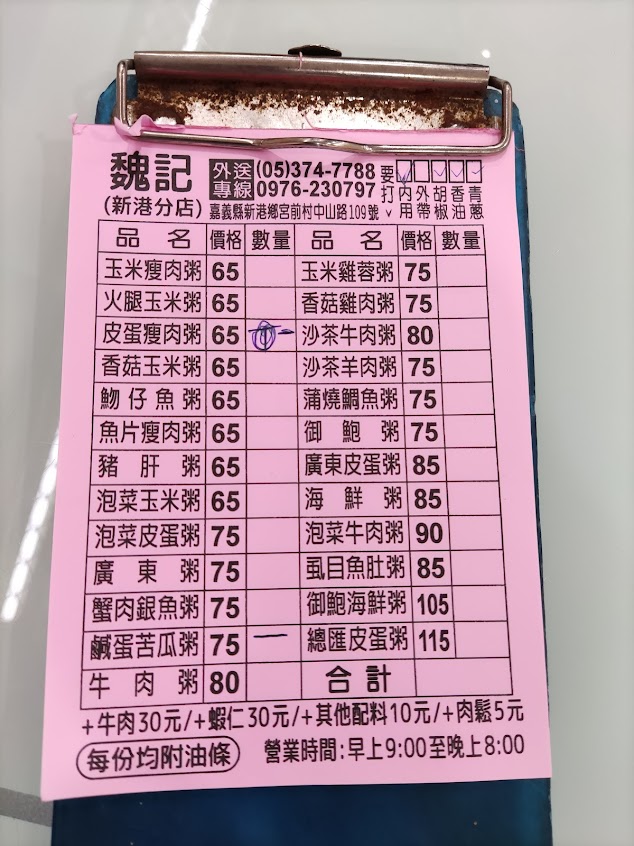 魏記
(新港分店)
外送專線 (05)374-7788
0976-230797
嘉義縣新港鄉宮前村中山路109號
要打✓ 內用 外帶 胡椒 香油 青蔥
品名 價格 數量 品名 價格 數量
玉米瘦肉粥 65 玉米雞蓉粥 75
火腿玉米粥 65 香菇雞肉粥 75
皮蛋瘦肉粥 65 沙茶牛肉粥 80
香菇玉米粥 65 沙茶羊肉粥 75
魩仔魚粥 65 蒲燒鯛魚粥 75
魚片瘦肉粥 65 御鮑粥 75
豬肝粥 65 廣東皮蛋粥 85
泡菜玉米粥 65 海鮮粥 85
泡菜皮蛋粥 75 泡菜牛肉粥 90
廣東粥 75 虱目魚肚粥 85
蟹肉銀魚粥 75 御鮑海鮮粥 105
鹹蛋苦瓜粥 75 一 總匯皮蛋粥 115
牛肉粥 80 合計
+牛肉30元/+蝦仁30元/+其他配料10元/+肉鬆5元
每份均附油條 營業時間:早上9:00至晚上8:00